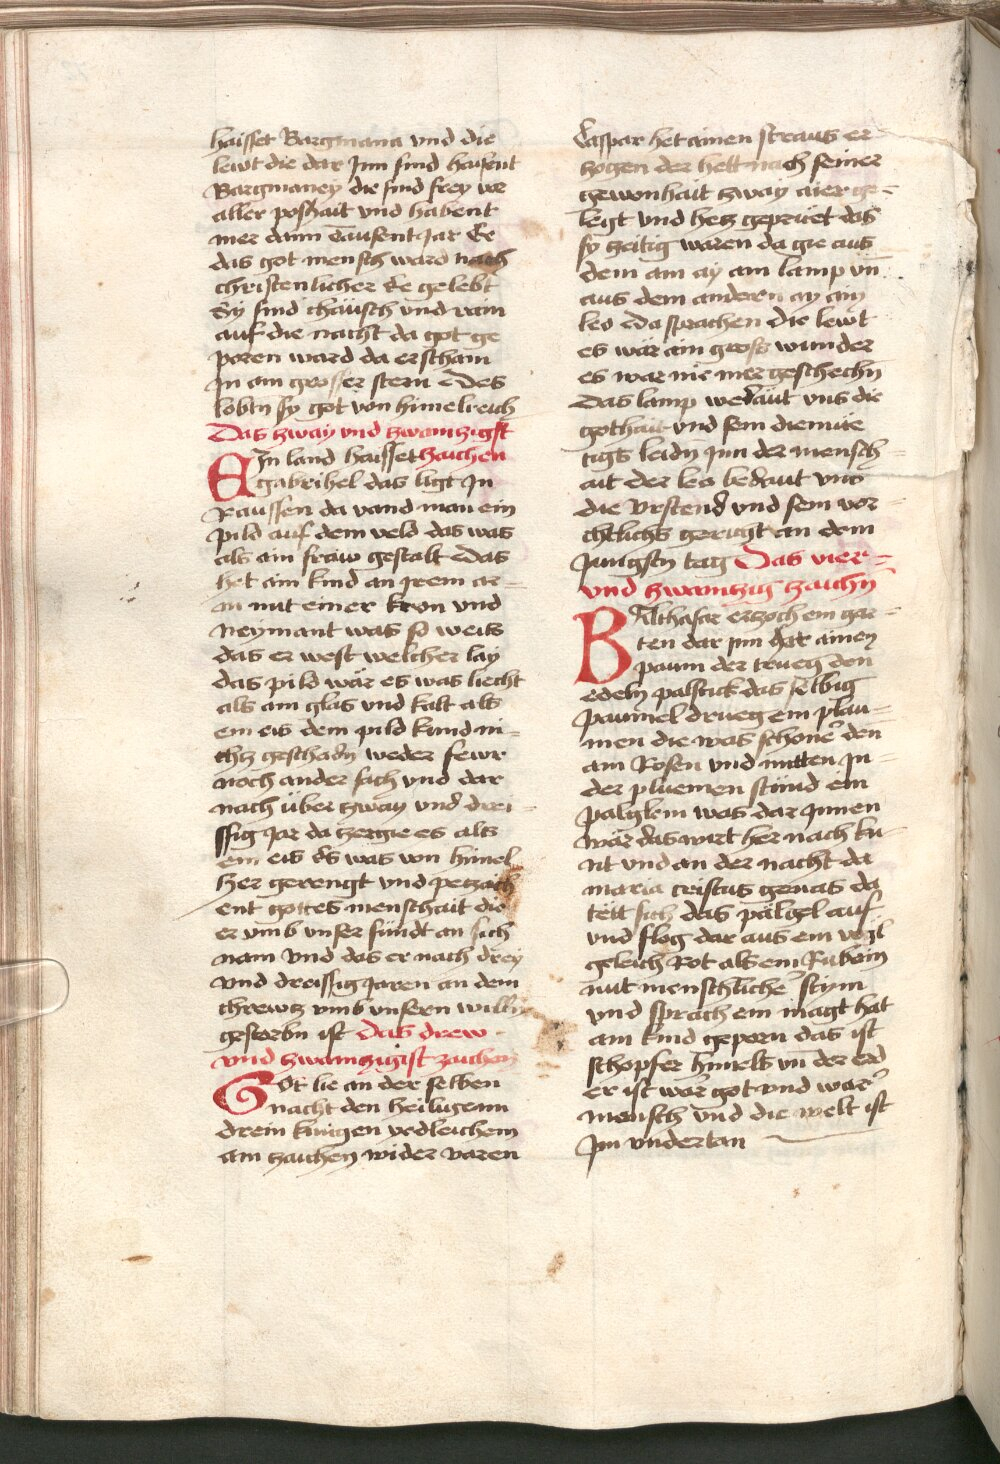 haisset Bargmana vnd die
lewt die dar Jnn sind haisent
Bargmaney die sind frey vor
aller poshait vnd habent
mer dann tausent Jar Ee
das got mensch ward nach
christenlicher Ee gelebt
Sy sind chäusch vnd rain
auf die nacht da got ge
poren ward da erscham
Jn am grosser stern Des
lobtn sy got von himelreich
Das zway vnd zwainzigst
EIn land haisset zaichen
gabrihel das ligt Jn
Raussen da vand man ein
pild auf dem veld das was
als ain fraw gestalt Das
het ain kind an Jrem ar-
m mit einer kron vnd
Neymant was so weis
das er west welcher lay
das pild wär es was liecht
als am glas vnd kalt als
ein eis dem pild kund ni-
chtz geschadn weder fewr
noch ander sach vnd dar
nach über zway vnd drei-
ssig Jar da zergie es als
ein eis Es was von himel
her gerengt vnd petzaich
ent gottes menschait die
er vmb vnser sündt an sich
nam vnd das er nach drey
vnd dreissig Jaren an dem
chrewtz vmb vnsern willn
gestorbn ist Das drew
vnd zwainzigist zaichen
Got lie an der selben
nacht den heiligenn
drein kunigen yedleichem
am zaichen wider varen
Caspar het ainen straus er
zogen der hett nach seiner
gewonhait zway aier ge-
legt vnd hetz geprüet das
sy zeitig waren da gie aus
dem am ay am lamp vn
aus dem anderen ay ain
leo Da sprachen die lewt
es wär ain gross wunder
es war nie mer geschechn
Das lamp wedäut vns die
gothait vnd sein diemüe
tigs leidn Jnn der mensch-
ait der leo bedaut vns
die Vrstend vnd sein vor-
chtlichs gericht an dem
Jungstn tag Das vier-
vnd zwainzig zaichn
BAlthasar erzoch ein gar-
ten dar Jnn het ainen
paum der trueg den
edeln palsam das selbig
paumel drueg ein plau-
men die was schoner den
am Rosen vnd mitten Jn
der pluemen stund ein
pälglein was dar Jnnen
wär das wirt her nach ku-
nt vnd an der nacht da
maria cristus genas da
tett sich das pälgel auf
vnd flog dar aus ein vogl
geleich Rot als ein Rubein
mit menschlicher stym
vnd sprach ein magt hat
am kind geporn das ist
schopfer himels vn der erd
er ist war got vnd war
mensch vnd die welt ist
Jm vndertan